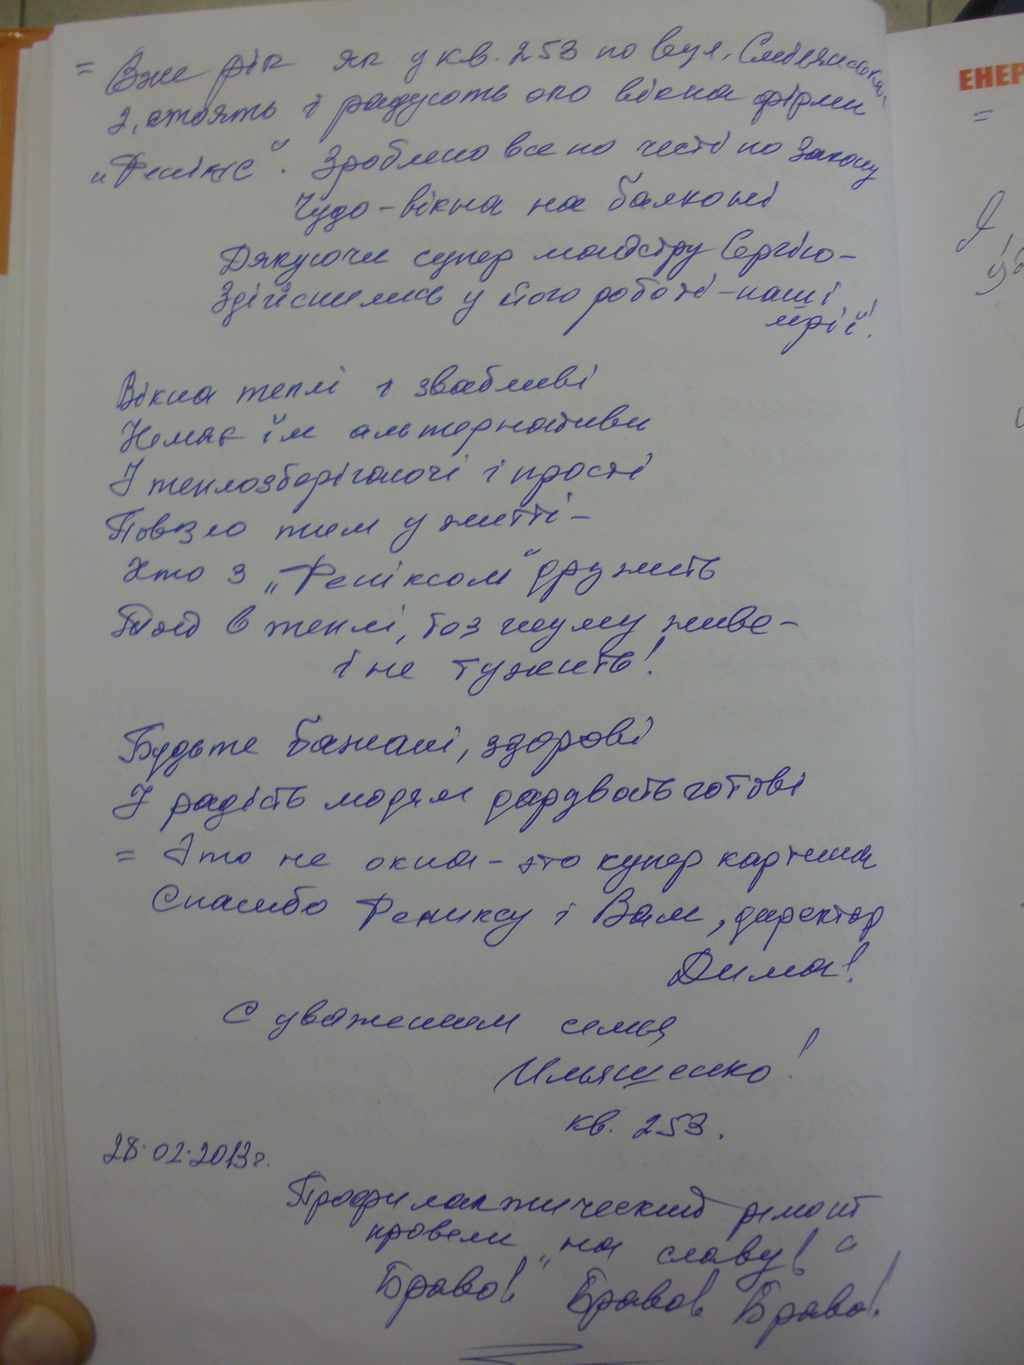 = Вже рік як у кв. 253 по вул.
2, стоять і радують око вікна фірми
"Фенікс". Зроблено все по честі по Закону
Чудо-вікна на балконі
Дякуючи супер майстру Сергію-
Здійснились у його роботі-наші
мрії!
Вікна теплі і звабливі
Немає їм альтернативи
І теплозберігаючі і прості
Повзло тим у житті-
Хто з "Феніксом" дружить
Той в теплі, без шуму живе-
і не тужить!
Будьте бажані, здорові
І радість людям дарувать готові
= Это не окна - это супер картина
Спасибо Фениксу і Вам, директор
Дима!
С уважением семья
Ильяшенко!
кв. 253.
28.02.2013г.
Профилактический ремонт
провели "на славу!"
Браво! Браво! Браво!
ЕНЕР
=
Я,